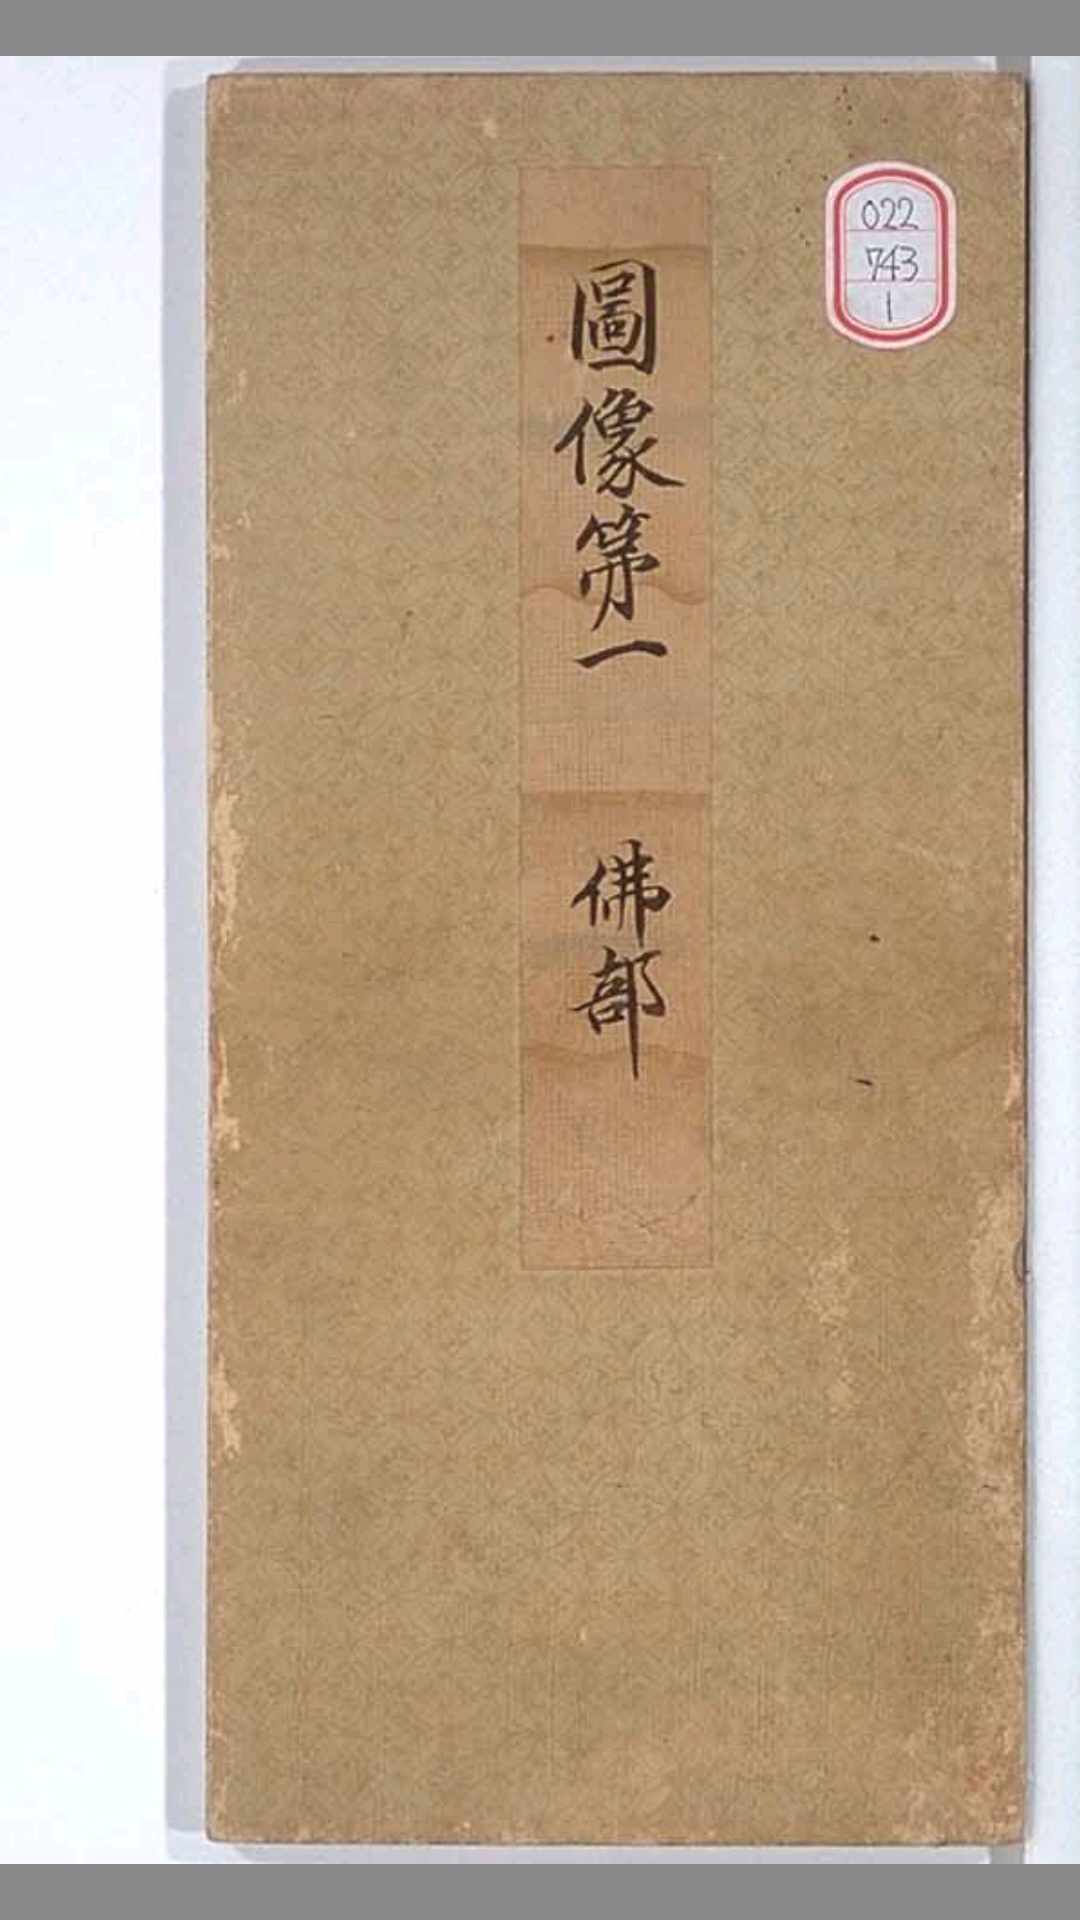 圖像第一 佛部
022
743
1